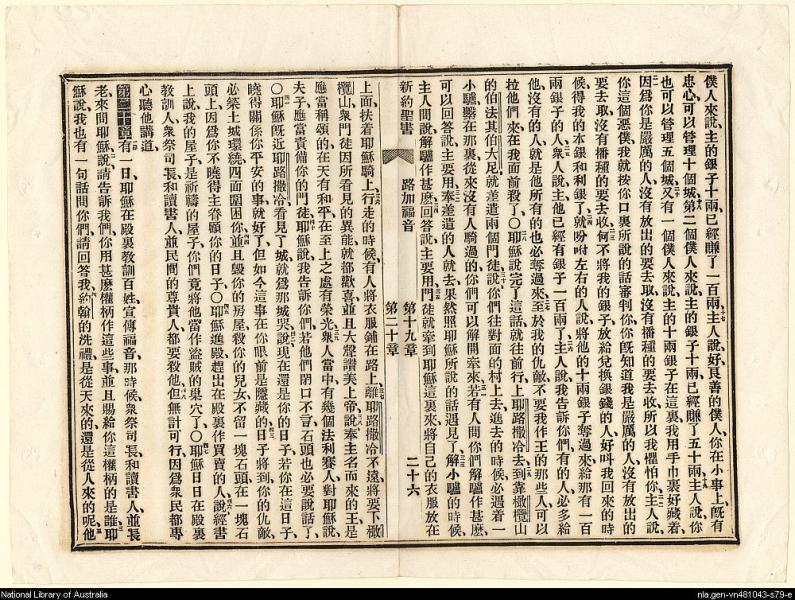 僕人來說主的銀子十兩已經賺了一百兩主人說好良善的僕人你在小事上旣有
忠心可以管理十個城第二個僕人來說主的銀子十兩已經賺了五十兩主人說你
也可以管理五個城又有一個僕人來說主的十兩銀子在這裏我用手巾裹好藏着
因爲你是嚴厲的人沒有放出的要去取沒有播種的要去收所以我懼怕你主人說
你這個惡僕我就按你口裏所說的話審判你你旣知道我是嚴厲的人沒有放出的
要去取沒有播種的要去收何不將我的銀子放給兌換銀錢的人好呌我回來的時
候得我的本銀和利銀了就吩咐左右的人說將他的十兩銀子奪過來給那有一百
兩銀子的人衆人說主他已經有銀子一百兩了主人說我告訴你們有的人必多給
他沒有的人就是他所有的也必奪過來至於我的仇敵不要我作王的那些人可以
拉他們來在我面前殺了〇耶穌說完了這話就往前行上耶路撒冷去到靠橄欖山
的伯法其伯大尼就差遣兩個門徒說你們往對面的村上去進去的時候必遇着一
小驢繫在那裏從來沒有人騎過的你們可以解開牽來若有人問你們解驢作甚麽
可以回答說主要用奉差遣的人就去果然照耶穌所說的話遇見了解小驢的時候
主人問說解驢作甚麽回答說主要用門徒就牽到耶穌這裏來將自己的衣服放在
新約聖書 路加福音 第十九章 第二十章 二十六
上面扶着耶穌騎上行走的時候有人將衣服鋪在路上離耶路撒冷不遠將要下橄
欖山衆門徒因所看見的異能就都歡喜並且大聲讚美上帝說奉主名而來的王是
應當稱頌的在天有和平在至上之處有榮光衆人當中有幾個法利賽人對耶穌說
夫子應當責備你的門徒耶穌說我告訴你們若他們閉口不言石頭也必要說話了
〇耶穌旣近耶路撒冷看見了城就爲那城哭說現在還是你的日子若你在這日子
曉得關係你平安的事就好了但如今這事在你眼前是隱藏的日子將到你的仇敵
必築土城環繞四面圍困你並且毀你的房屋殺你的兒女不留一塊石頭在一塊石
頭上因爲你不曉得主眷顧你的日子〇耶穌進殿趕出在殿裏作買賣的人說經書
上說我的屋子是祈禱的屋子你們竟將他當作盜賊的巢穴了〇耶穌日日在殿裏
教訓人衆祭司長和讀書人並民間的尊貴人都要殺他但無計可行因爲衆民都專
心聽他講道
第二十章有一日耶穌在殿裏教訓百姓宣傳福音那時候衆祭司長和讀書人並長
老來問耶穌說請告訴我們你用甚麽權柄作這些事並且賜給你這權柄的是誰耶
穌說我也有一句話問你們請回答我約翰的洗禮是從天來的還是從人來的呢他
National Library of Australia
nla.gen-vn481043-s79-e